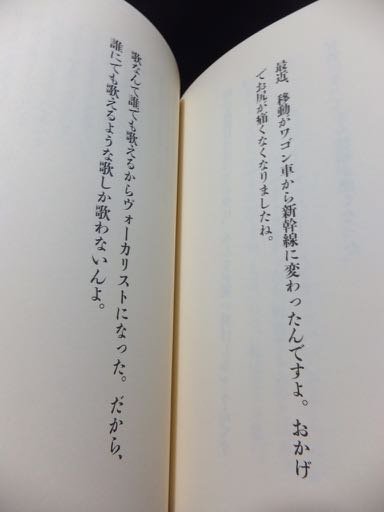 最近、移動がワゴン車から新幹線に変わったんですよ。おかげ
でお尻が痛くなくなりましたね。
歌なんて誰でも歌えるからヴォーカリストになった。だから、
誰にでも歌えるような歌しか歌わないんよ。